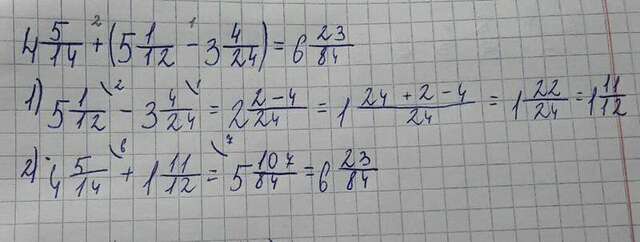 4 5/14 + (5 1/12 - 3 4/24) = 6 23/84
1) 5 1/12 - 3 4/24 = 2 2-4/24 = 1 24+2-4/24 = 1 22/24 = 1 11/12
2) 4 5/14 + 1 11/12 = 5 107/84 = 6 23/84